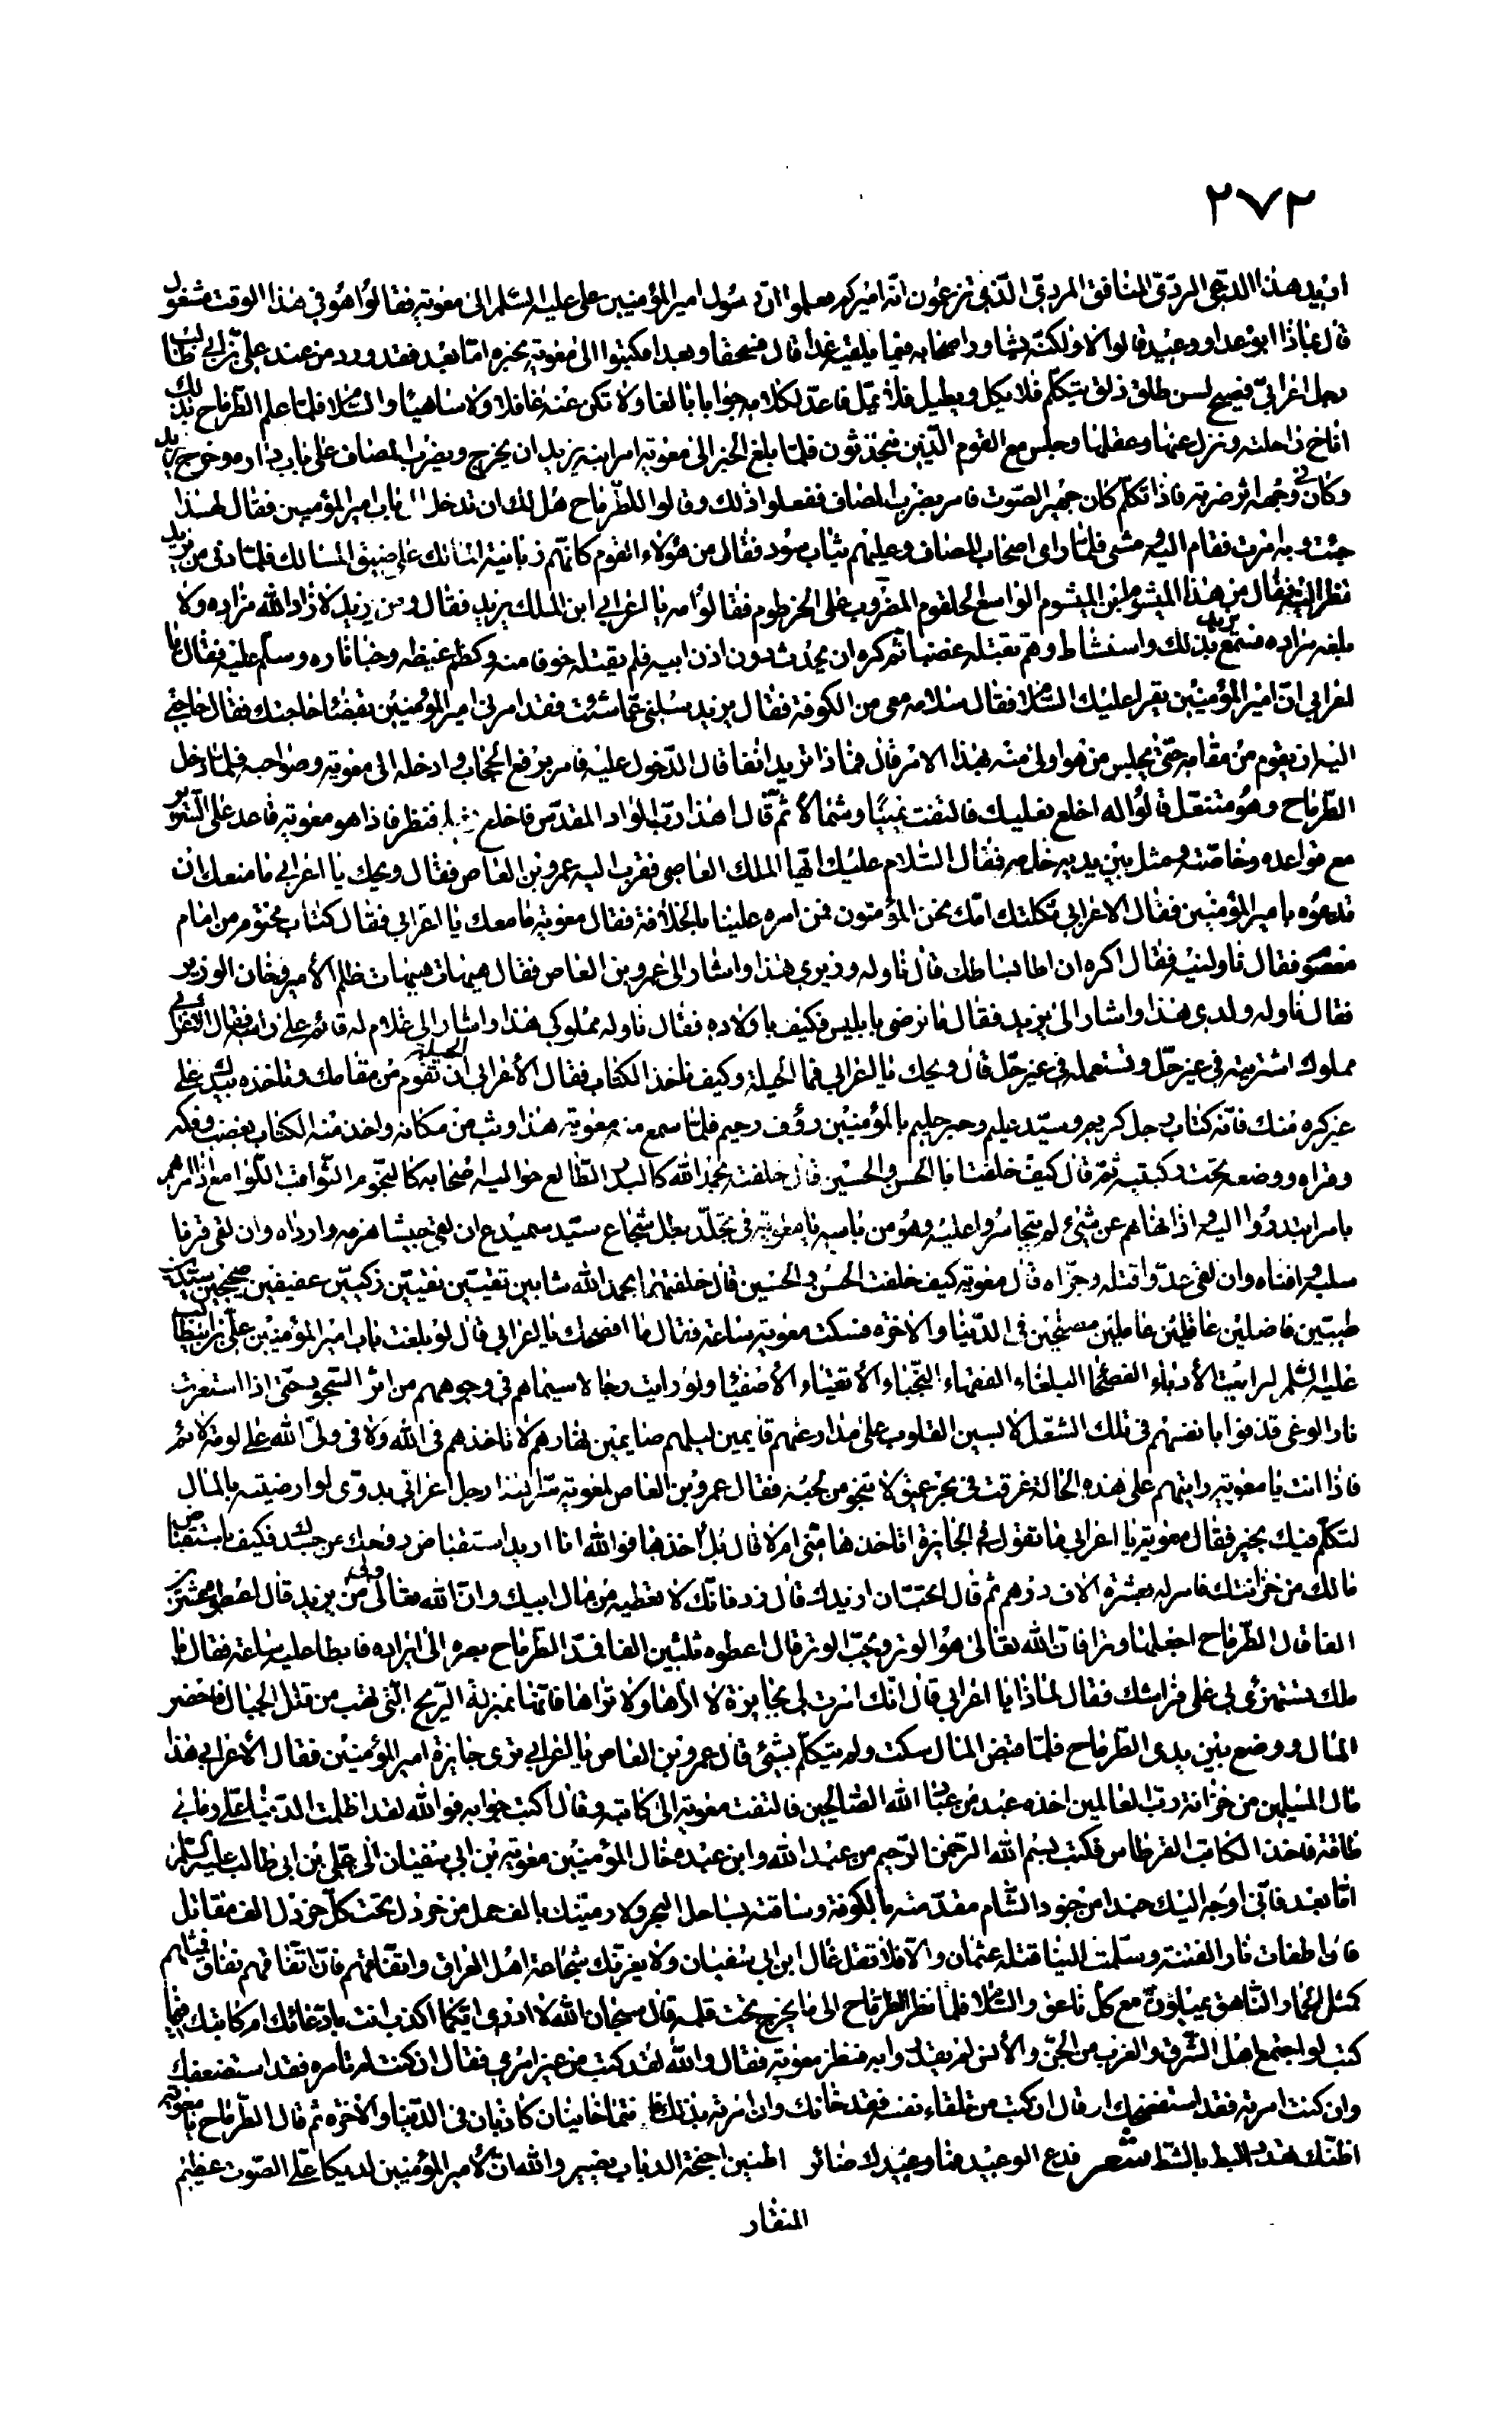 ٢٧٢
اريد هذا الدعى الردىّ المنافق المردى الذى تزعمون انه اميركم فعلموا انّه رسول امير المؤمنين على عليه السّلم الى معوية فقالوا هو فى هذا الوقت مشغول
قال بماذا ابوعد او وعيد قالوا لا ولكنّه يشاور اصحابه فيما يلقيه غدا قال فسحقا وبعدا فكتبوا الى معوية بخبره امّا بعد فقد ورد من عند على بن ابى طالب
رجل اعرابىّ فصيح لسن طلق ذلق يتكلّم فلا يكل ويطيل فلا يملّ فاعدّ لكلامه جوابا بالغا ولا تكن عنه غافلا ولا ساهيا والسّلام فلمّا علم الطّرماح بذلك
اناخ راحلته ونزل عنها وعقلها وجلس مع القوم الّذين يتحدّثون فلمّا بلغ الخبر الى معوية امر ابنه يزيد ان يخرج ويضرب المصاف على باب داره فخرج يزيد
وكان فى وجهه اثر ضربة فاذا تكلّم كان جهير الصّوت فامر بضرب المصاف ففعلوا ذلك وقالوا للطّرماح هل لك ان تدخل الى باب امير المؤمنين فقال لهذا
جئت وبه امرت فقام اليه ومشى فلمّا راى اصحاب المصاف وعليهم ثياب سود فقال من هؤلاء القوم كانّهم زبانية لمالك على ضيق المسالك فلمّا دنى من يزيد
نظر اليه فقال من هذا الميشوم ابن الميشوم الواسع الحلقوم المضروب على الخرطوم فقالوا مه يا اعرابى ابن الملك يزيد فقال ومن يزيد لا زاد الله مزاده ولا
بلغه مراده فسمع يزيد بذلك واستشاط وهمّ بقتله غضبا ثمّ كره ان يحدث دون اذن ابيه فلم يقتله خوفا منه وكظم غيظه وخبا ناره وسلّم عليه فقال يا
اعرابى انّ امير المؤمنين يقرا عليك السّلام فقال سلامه معى من الكوفة فقال يزيد سلنى عمّا شئت فقد امرنى امير المؤمنين بقضاء حاجتك فقال حاجتى
اليه ان يقوم من مقامه حتّى يجلس من هو اولى منه بهذا الامر قال فماذا تريد انفا قال الدّخول عليه فامر برفع الحجاب وادخله الى معوية وصواحبه فلمّا دخل
الطّرماح وهو متنعّل قالوا له اخلع نعليك فالتفت يمينا وشمالا ثمّ قال اهذا ربّ الواد المقدّس فاخلع نعلى فنظر فاذا هو معوية قاعد على السّرير
مع قواعده وخاصّته ومثل بين يديه خدمه فقال السّلام عليك ايّها الملك العاصى فقرب اليه عمرو بن العاص فقال ويحك يا اعرابى ما منعك ان
تدعوه بامير المؤمنين فقال الاعرابى ثكلتك امّك نحن المؤمنون فمن امره علينا بالخلافة فقال معوية ما معك يا اعرابى فقال كتاب مختوم من امام
معصوم فقال ناولنيه فقال اكره ان اطا بساطك قال ناوله وزيرى هذا واشار الى عمرو بن العاص فقال هيهات هيهات ظلم الأمير وخان الوزير
فقال ناوله ولدى هذا واشار الى يزيد فقال ما نرضى بابليس فكيف باولاده فقال ناوله مملوكى هذا واشار الى غلام له قائم على راسه فقال الاعرابى
مملوك اشتريته فى غير حلّ وتستعمله فى غير حلّ قال ويحك يا اعرابى فما الحيلة وكيف ناخذ الكتاب فقال الأعرابى الحيلة ان تقوم من مقامك وتاخذه بيدك على
غير كره منك فانّه كتاب رجل كريم وسيّد عليم وحبر حليم بالمؤمنين رؤف رحيم فلمّا سمع منه معوية هذا وثب من مكانه واخذ منه الكتاب بغضب وفكه
وقراه ووضعه تحت ركبتيه ثمّ قال كيف خلفت ابا الحسن والحسين قال خلفته بحمد الله كالبدر الطّالع حواليه اصحابه كالنّجوم الثّواقب اللّوامع اذا امرهم
بامر ابتدروا اليه واذا نهاهم عن شئ لم يتجاسروا عليه وهو من باسه يا معوية فى تجلّد بطل شجاع سيّد سميدع ان لقى جيشا هزمه وارداه وان لقى قرنا
سلبه وافناه وان لقى عدوّا قتله وجزّاه قال معوية كيف خلفت الحسن والحسين قال خلفتهما بحمد الله شابين تقيّين نقيّين زكيّين عفيفين صحيحين سيّدين
طيبّين فاضلين عاقلين عاملين مصلحين فى الدّنيا والاخره فسكت معوية ساعة فقال ما افصحك يا اعرابى قال لو بلغت باب امير المؤمنين علىّ بن ابيطالب
عليه السّلم لرايت الأدباء الفصحا البلغاء الفقهاء النّجباء الأتقياء الأصفيا ولو رايت رجالا سيماهم فى وجوههم من اثر السّجود حتّى اذا استعرت
نار الوغى قذفوا بانفسهم فى تلك الشّعل لابسين القلوب على مدارعهم قايمين ليلهم صايمين نهارهم لا تاخذهم فى الله ولا فى ولىّ الله على لومة لائم
فاذا انت يا معوية رايتهم على هذه الحالة غرقت فى بحر عميق لا تنجو من لجّته فقال عمرو بن العاص لمعوية سرّا هذا رجل اعرابى بدوّى لو ارضيته بالمال
لتكلّم فيك بخير فقال معوية يا اعرابى ما تقول فى الجايزة اتاخذها منّى ام لا قال بل اخذها فوالله انا اريد استقباض روحك من جسدك فكيف باستقباض
مالك من خزانتك فامر له بعشرة الاف درهم ثم قال اتحبّ ان ازيدك قال زد فانّك لا تعطيه من مال ابيك وانّ الله تعالى ولىّ من يزيد قال اعطوه عشرين
الفا قال الطّرماح اجعلها وترا فانّ الله تعالى هو الوتر ويحبّ الوتر قال اعطوه ثلثين الفا فمدّ الطّرماح بصره الى ايراده فابطا عليه ساعة فقال يا
ملك تستهزئ بى على فراشك فقال لماذا يا اعرابى قال انّك امرت لى بجايزة لا اراها ولا تراها فانّها بمنزلة الرّيح الّتى تهب من قلل الجبال فاحضر
المال ووضع بين يدى الطّرماح فلمّا قبض المال سكت ولم يتكلّم بشئ قال عمرو بن العاص يا اعرابى كيف ترى جايزة امير المؤمنين فقال الأعرابى هذا
مال المسلمين من خزانة ربّ العالمين اخذه عبد من عباد الله الصّالحين فالتفت معوية الى كاتبه وقال اكتب جوابه فوالله لقد اظلمت الدّنيا علىّ ومالى
طاقة فاخذ الكاتب القرطاس فكتب بسم الله الرّحمن الرّحيم من عبد الله وابن عبده خال المؤمنين معوية بن ابى سفيان الى على بن ابى طالب عليه السّلم
امّا بعد فانّى اوجه اليك جندا من جنود الشّام مقدّمته بالكوفة وساقته بساحل البحر ولارمينّك بالف حمل من خردل تحت كلّ خردل الف مقاتل
فان اطفات نار الفتنة وسلّمت الينا قتلة عثمان والّا فلا تقل غال ابن ابى سفيان ولا يغرنّك شجاعة اهل العراق واتفاقهم فانّ اتّفاقهم نفاق فمثلهم
كمثل الحمار النّاهق يميلون مع كلّ ناعق والسّلام فلمّا نظر الطّرماح الى ما يخرج تحت قلمه قال سبحان الله لا ادرى ايّكما اكذب انت بادّعائك ام كاتبك فيما
كتب لو اجتمع اهل الشّرق والغرب من الجنّ والأنس لم يقدروا به فنظر معوية فقال والله لقد كتب من غير امرى فقال ان كنت لم تامره فقد استضعفك
وان كنت امرته فقد استفضحك او قال ان كتب من تلقاء نفسه فقد خانك وان امرته بذلك فانتما خاينان كاذبان فى الدّنيا والاخره ثم قال الطّرماح يا معوية
اظنّك تهدد البط بالشّط شعر فدع الوعيد فما وعيدك ضائر اطنين اجنحة الذباب يضير والله انّ لأمير المؤمنين لديكا علىّ الصّوت عظيم
المنقار